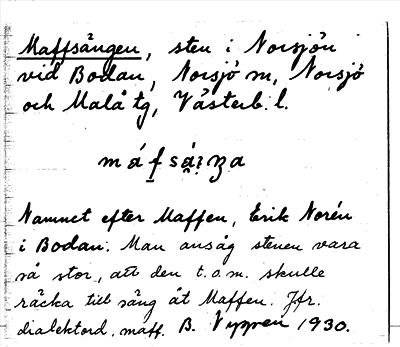 Maffsängen, sten i Norsjön
vid Bodan, Norsjö sn, Norsjö
och Malå tg, Västerb. l.
Namnet efter Maffen, Erik Norén
i Bodan. Man ansåg stenen vara
så stor, att den t.o.m. skulle
räcka till säng åt Maffen. Jfr.
dialektord, maff. B. 1930.